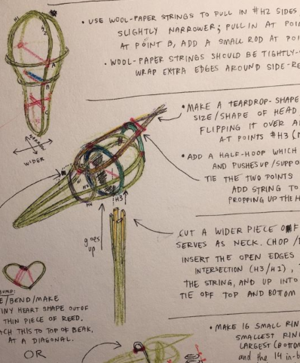 • USE WOOL-PAPER STRINGS TO PULL IN #H2 SIDES
SLIGHTLY NARROWER; PULL IN AT POIN
AT POINT B, ADD A SMALL ROD AT PO
- WOOL-PAPER STRINGS SHOULD BE TIGHTLY-
WRAP EXTRA EDGES AROUND SIDE-RE
WIDER
• MAKE A TEARDROP-SHAPE
SIZE/SHAPE OF HEAD
FLIPPING IT OVER A
AT POINTS #H3 (
• ADD A HALF-HOOP WHICH
AND PUSHES UP/SUPPO
TIE THE TWO POINTS
ADD STRING TO
PROPPING UP THE H
H3
goes
up
CUT A WIDER PIECE OF
SERVES AS NECK. CHOP /
INSERT THE OPEN EDGES
INTERSECTION (H3/H2),
THE STRING, AND UP INTO
TIE OFF TOP AND BOTTOM
E/BEND/MAKE
INY HEART SHAPE OUT OF
THIN PIECE OF REED.
ACH THIS TO TOP OF BEAK,
AT A DIAGONAL.
OR
• MAKE 16 SMALL RIN
SMALLEST RIN
LARGEST (
and the 14 in-b